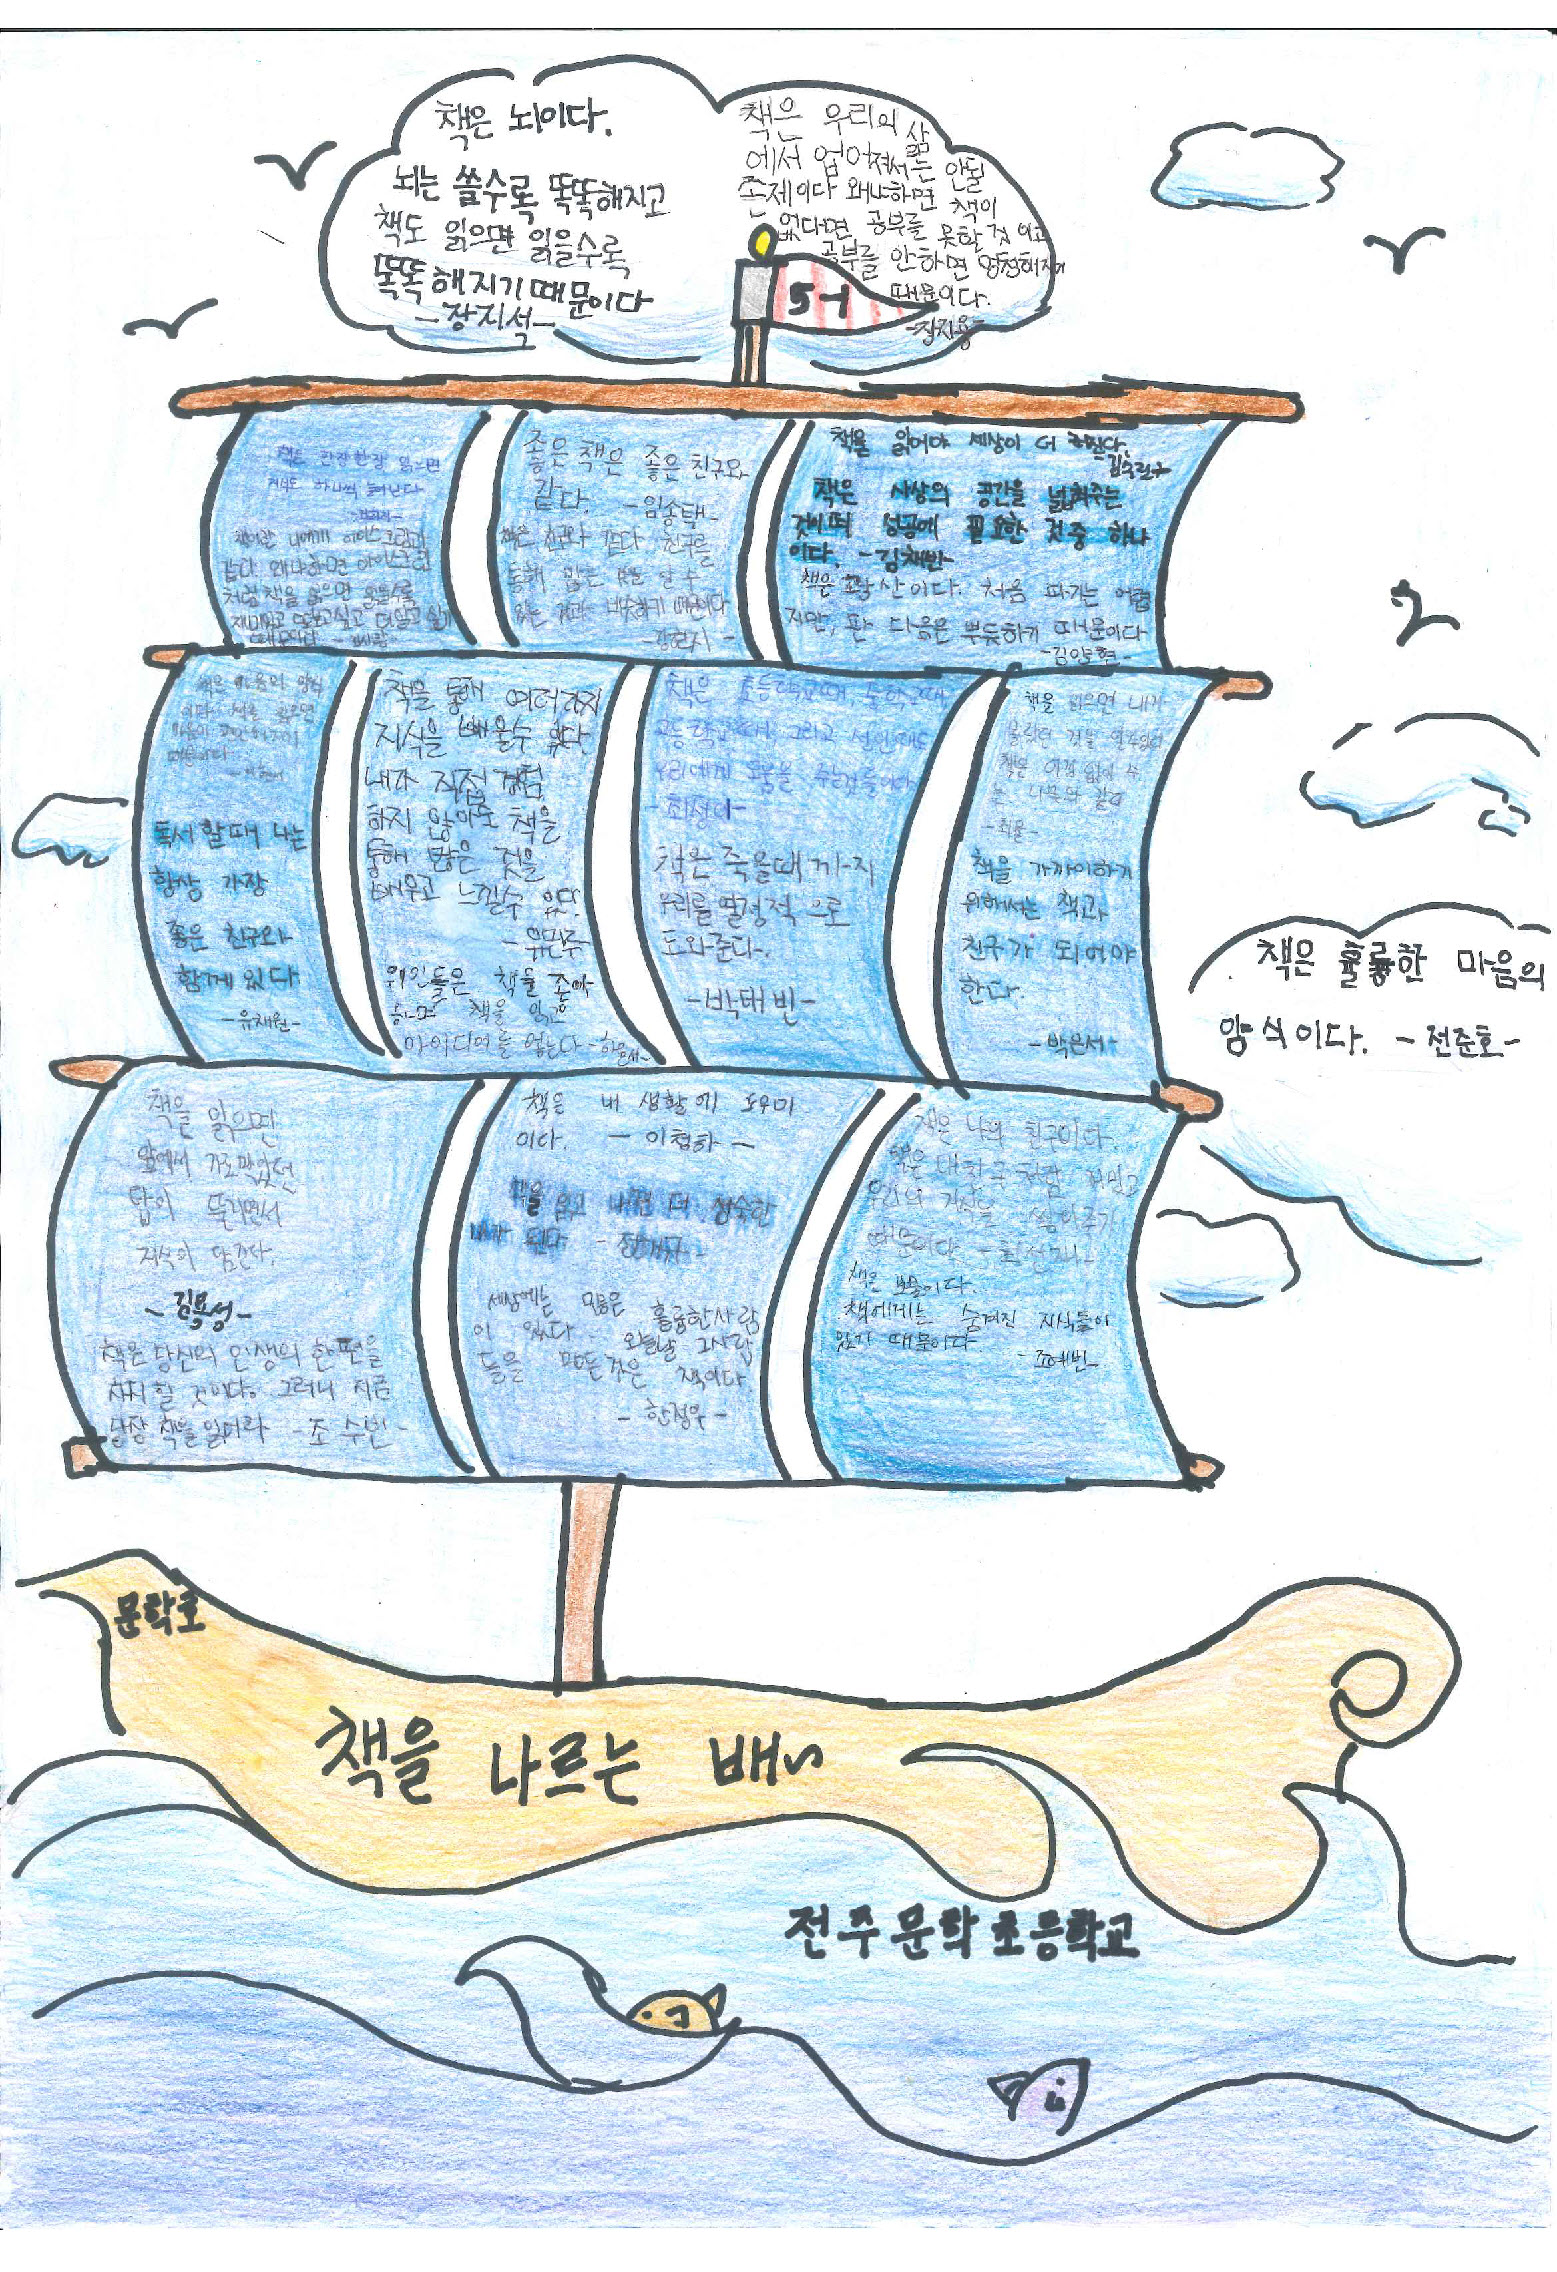 책은 뇌이다.
뇌는 쓸수록 똑똑해지고
책도 읽으면 읽을수록
똑똑해지기 때문이다
-장지석-
책은 우리의 삶
에서 업어져서는 안될
존제이다 왜냐하면 책이
없다면 공부를 못할 것 이고
공부를 안하면 멍청해지기
때문이다.
5-1
책은 한장한장 읽으면
지식도 하나씩 늘어난다
책이란 나에게 아이스크림과
같다. 왜냐하면 아이스크림
처럼 책을 읽으면 읽을수록
재미있고 더읽고 싶기
때문이다
좋은 책은 좋은 친구와
같다. -임송택-
책은 친구와 같다 친구를
통해 많은 것을 알 수
있는 것과 비슷하기 때문이다
-강현지-
책을 읽어야 세상이 더
책은 사상의 공간을 넓혀주는
것이며 성공에 필요한 것중 하나
이다. -김채빈-
책은 광산이다. 처음 파기는 어렵
지만, 판 다음은 뿌듯하기 때문이다
책은 마음의 양식
이다 책을 읽으면
마음이 편안해지기
때문이다
독서 할때 나는
항상 가장
좋은 친구와
함께 있다
-유채원-
책을 통해 여러가지
지식을 배울수 있다.
내가 직접 경험
하지 않아도 책을
통해 많은 것을
배우고 느낄수 있다.
-유민주-
위인들은 책을 좋아
하며 책을 읽고
아이디어를 얻는다 -하은서-
책은 초등학교때, 중학교때
고등학교때, 그리고 성인때도
우리에게 도움을 주는것들이다
책은 죽을때 까지
우리를 열정적 으로
도와준다.
-박태빈-
책을 읽으면 내가
몰랐던 것을 알수있다
-최율-
책을 가까이하기
위해서는 책과
친구가 되어야
한다.
-박은서-
책은 훌륭한 마음의
양식이다. -전준호-
책을 읽으면
앞에서 가로막았던
답이 뚫리면서
지식이 담긴다.
책은 당신의 인생의 한편을
차지할 것이다. 그러니 지금
당장 책을 읽어라 -조수빈-
책은 내 생활에 도우미
이다.
책을 읽고 나면 더 성숙한
내가 된다
세상에는 많은 훌륭한사람
이 있다. 오늘날 그사람
들을 만든것은 책이다.
-한정우-
책은 나의 친구이다.
책은 내친구처럼 재밌고
우리의 지식을 쌓아주기
때문이다
책은 보물이다.
책에게는 숨겨진 지식들이
있기 때문이다.
-조예빈-
문학호
책을 나르는 배
전주문학초등학교